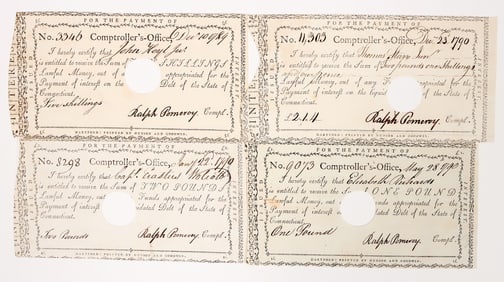 FOR THE PAYMENT OF
No. 3546 Comptroller's-Office, Decr 10 1789
I hereby certify that John Hoyt Junr
is entitled to receive the Sum of SHILLINGS
Lawful Money, out of appropriated for the
Payment of interest on Debt of the State of
Connecticut.
Five shillings
Ralph Pomeroy Compt.
HARTFORD: PRINTED BY HUDSON AND GOODWIN.
FOR THE PAYMENT OF
No. 11,303 Comptroller's-Office, Decr 23d 1790
I hereby certify that
is entitled to receive the Sum of Two pounds one Shilling
and four pence
Lawful Money, out of any appropriated for the
Payment of interest on the Debt of the State of
Connecticut.
£2.1.4
Ralph Pomeroy Compt.
HARTFORD: PRINTED BY HUDSON AND GOODWIN.
FOR THE PAYMENT OF
No. 5298 Comptroller's-Office, 22d 1790
I hereby certify that Capt. Erastus Wolcott
is entitled to receive the Sum of TWO POUNDS
Lawful Money, out of Funds appropriated for the
Payment of interest on liquidated Debt of the State of
Connecticut.
Two Pounds
Ralph Pomeroy Compt.
HARTFORD: PRINTED BY HUDSON AND GOODWIN.
FOR THE PAYMENT OF
No. 9073 Comptroller's-Office, May 28 1790
I hereby certify that Elizabeth Richards
is entitled to receive the Sum of ONE POUND
Lawful Money, out of Funds appropriated for the
Payment of interest liquidated Debt of the State of
Connecticut.
One Pound
Ralph Pomeroy Compt.
HARTFORD: PRINTED BY HUDSON AND GOODWIN.